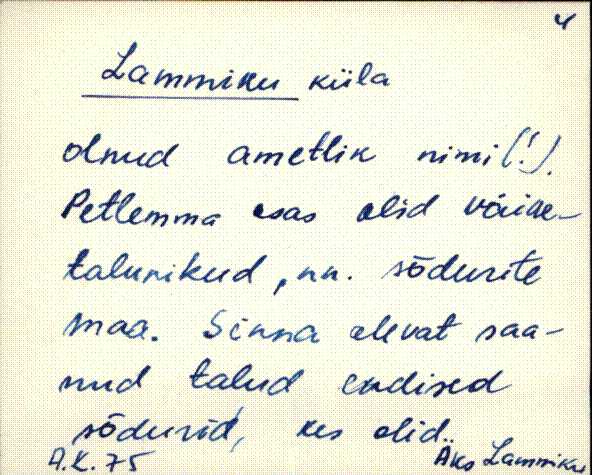 4
Lammiku küla
olnud ametlik nimi(!).
Petlemma osas olid väike-
talunikud, nn. sõdurite
maa. Sinna olevat saa-
nud talud endised
sõdurid, kes olid..
A.K. 75 Äks Lammiku